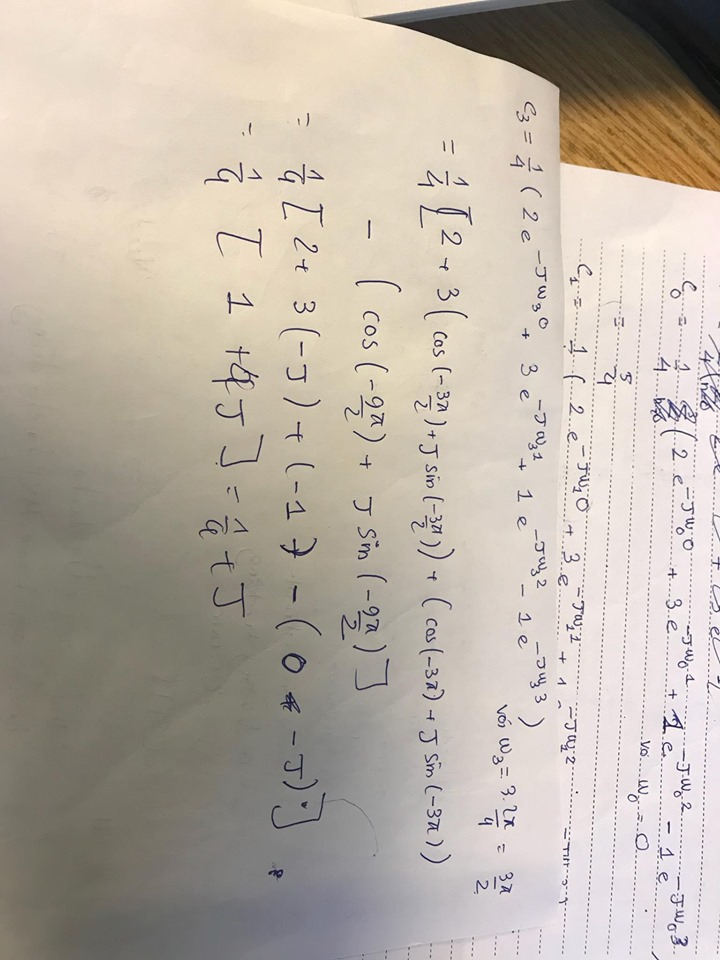 C₀ = 1/4 (2e^{-Jω₀0} + 3e^{-Jω₀1} + 1e^{-Jω₀2} - 1e^{-Jω₀3})
với ω₀ = 0
= 5/4
C₁ = 1/4 (2e^{-Jω₁0} + 3e^{-Jω₁1} + 1e^{-Jω₁2}
C₃ = 1/4 (2e^{-Jω₃0} + 3e^{-Jω₃1} + 1e^{-Jω₃2} - 1e^{-Jω₃3})
với ω₃ = 3.2π/4 = 3π/2
= 1/4 [2 + 3(cos(-3π/2) + J sin(-3π/2)) + (cos(-3π) + J sin(-3π))
- (cos(-9π/2) + J sin(-9π/2)]
= 1/4 [2 + 3(-J) + (-1) - (0 - J)]
= 1/4 [1 + 4J] = 1/4 + J